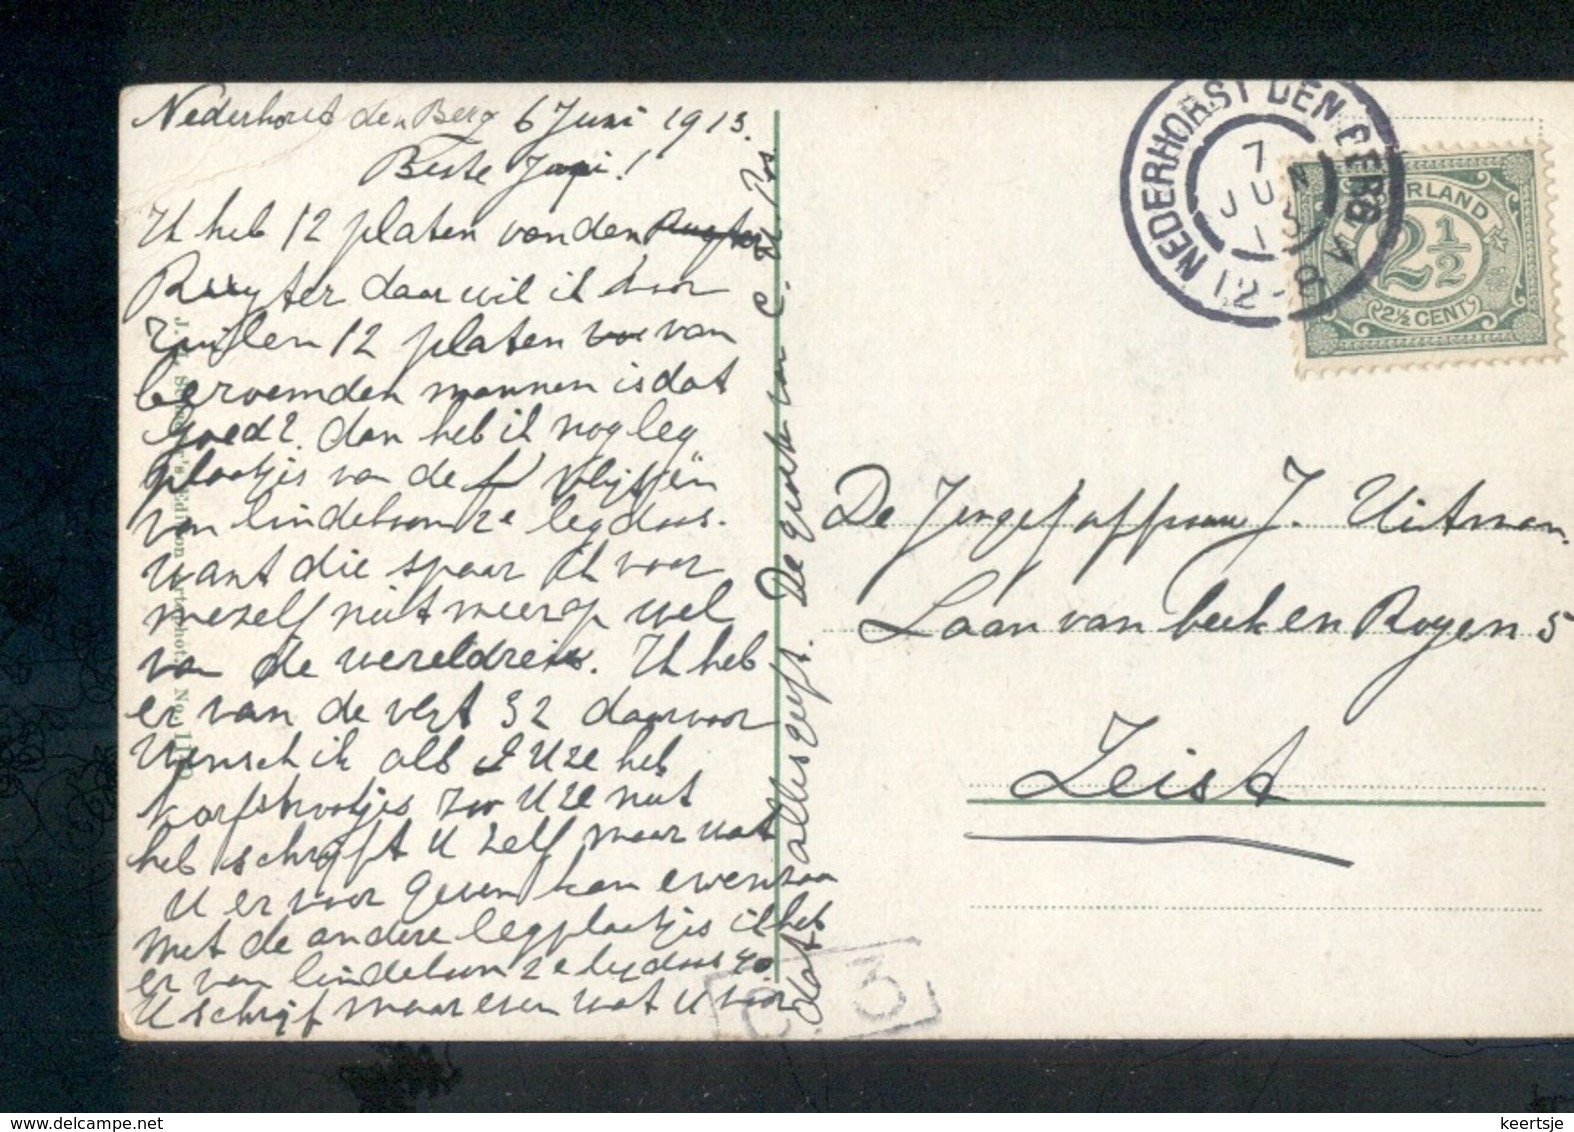 Nederhorst den Berg 6 Juni 1913.
Beste Jaapi!
Ik heb 12 platen van den
Ruyter daar wil ik voor
ruijlen 12 platen van
beroemden mannen is dat
goed? dan heb ik nog leg
plaatjes van de
van lindeboom ze legdoos.
want die spaar ik voor
mezelf niet meer op wel
van de wereldreis. Ik heb
er van de 32 daarvoor
wensch ik als U ze heb
U ze niet
heb schrijft U zelf maar wat
U er voor geven kan evenzoo
met de andere legplaatjes ik heb
er van lindeboom ze legdoos 40.
U schrijf maar even wat U voor
dat alles geeft. De groeten van
NEDERHORST DEN BERG
7 JUN 13
12-8 V
NEDERLAND
2½
2½ CENT
De Jonge J. Uitman.
Laan van beek en Royen 5
Zeist
J. Sleding's Edition No. 11
keertsje